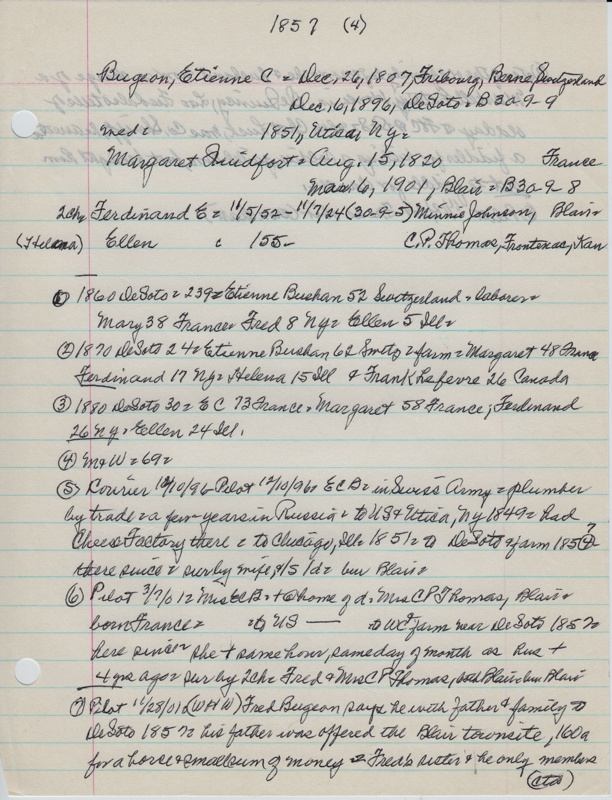 1857 (4)
Bugeon, Etienne C = Dec, 26, 1807, Fribourg, Berne, Switzerland
Dec, 6, 1896, DeSoto = B30-9-9
med = 1851, Utica, Ny =
Margaret Guidfort = Aug. 15, 1820 France
Mar 6, 1901, Blair = B30-9-8
2ch, Ferdinand E = 11/5/52 - 11/7/24 (30-9-5) Minnie Johnson, Blair =
(Helena) Ellen c 155- C.P. Thomas, Frontenac, Kan
① 1860 DeSoto = 239 = Etienne Bushan 52 Switzerland = laborer =
Mary 38 France = Fred 8 Ny = Ellen 5 Ill =
② 1870 DeSoto 24 = Etienne Bushan 62 = farm = Margaret 48 France
Ferdinand 17 Ny = Helena 15 Ill & Frank Lefevre 26 Canada
③ 1880 DeSoto 30 = E C 73 France = Margaret 58 France; Ferdinand
26 Ny = Ellen 24 Ill.
④ M & W = 69 =
⑤ Courier 12/10/96 Pilot 12/10/96 = E C B = in Swiss Army = plumber
by trade = a few years in Russia = to US & Utica, Ny 1849 = had
Cheese Factory there = to Chicago, Ill = 1851 = to DeSoto & farm 185(7)?
there since = sur by wife, 1s/1d = bur Blair =
⑥ Pilot 3/7/01 = Mrs E C B = + @ home of d = Mrs C P Thomas, Blair =
born France = = to US — = to WC & farm near DeSoto 1857 =
here since = she + same hour, same day of month as hus +
4 yrs ago = sur by 2ch = Fred & Mrs C P Thomas, both Blair = bur Blair
⑦ Pilot 11/28/01 (WHW) Fred Bugeon says he with father & family to
DeSoto 1857 = his father was offered the Blair townsite, 160a
for a horse & small sum of money = Fred's sister & he only members
(ctd)